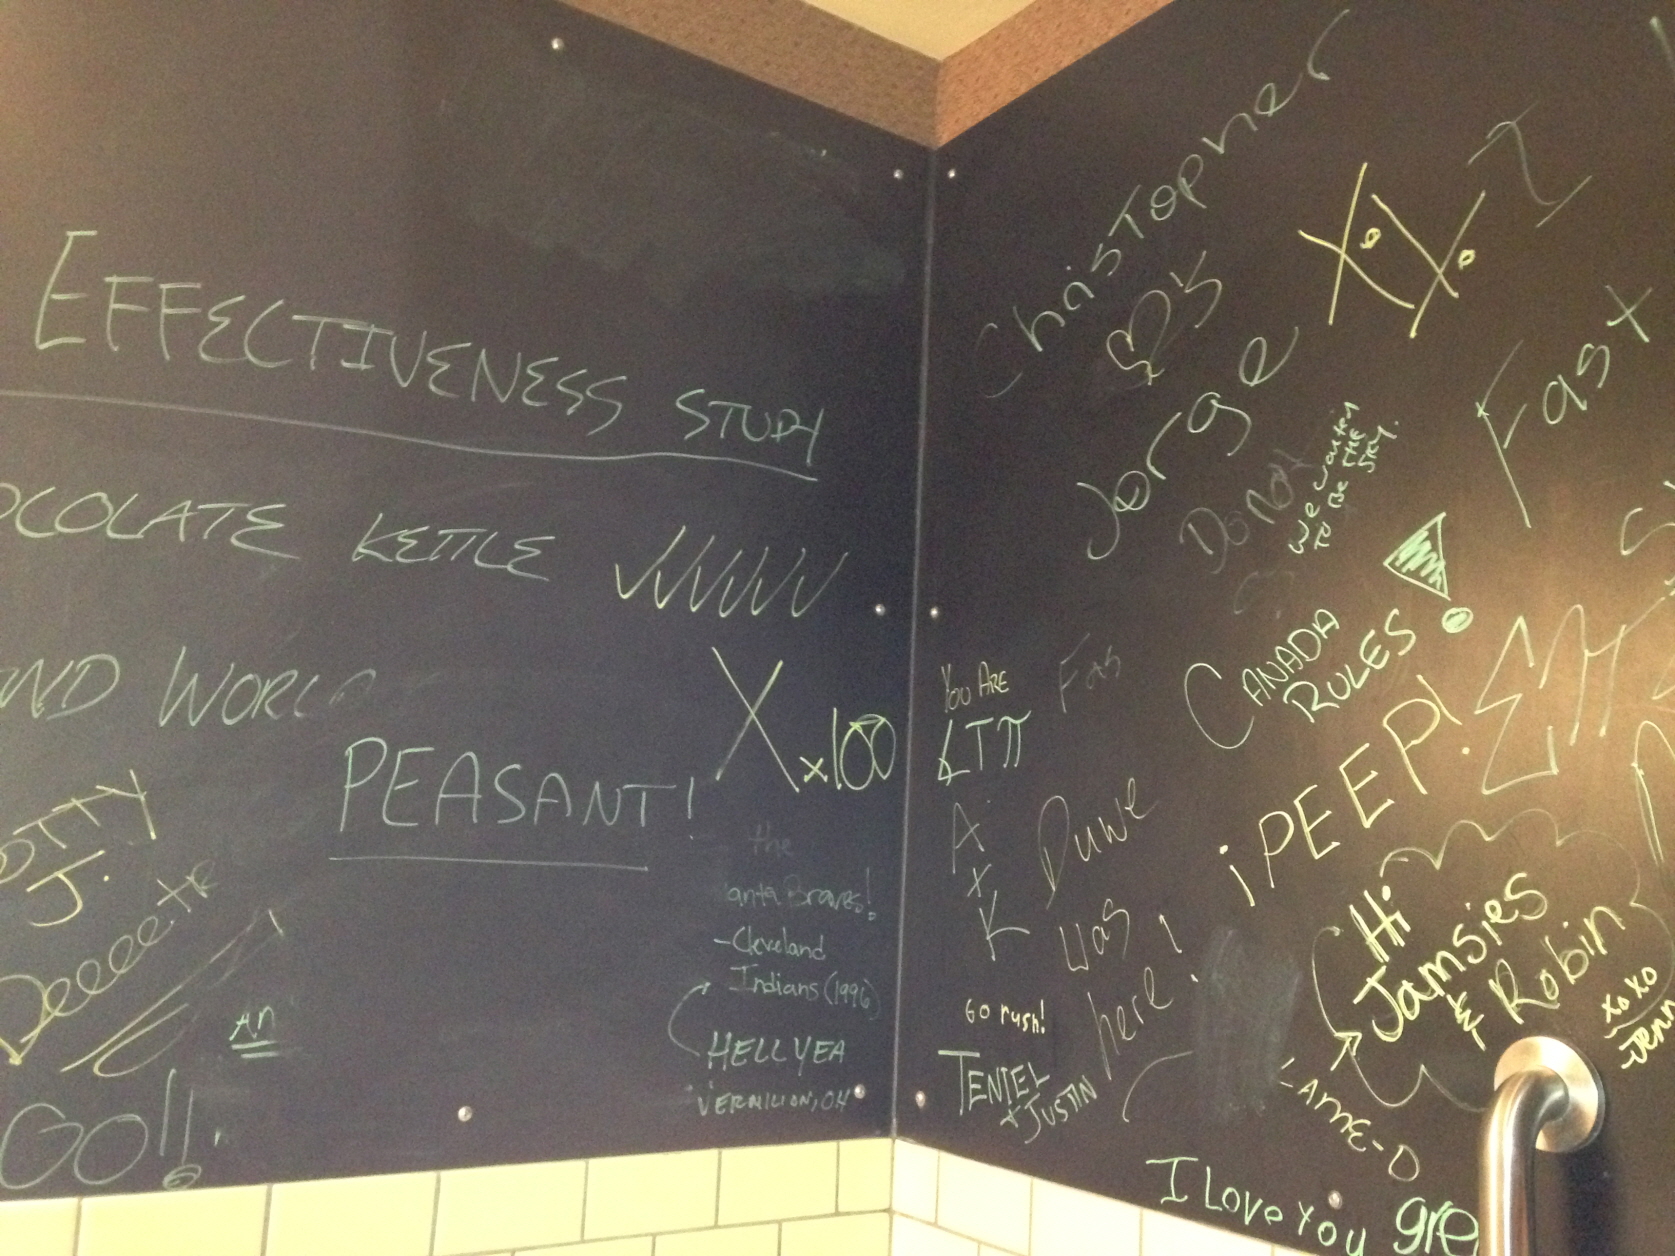 EFFECTIVENESS STUDY
OCOLATE KETTLE
ND WORLD
PEASANT!
X x100
OTTY
J.
Deeee-tr
An
GO!!
the
anta Braves!
-Cleveland
Indians (1996)
HELL YEA
VERMILION, OH
Christopher
Jorge
Donot
We wanted
to be the
sky.
Fast
CANADA
RULES
YOU ARE
Fas
¡PEEP!
A
x
K
Duwe
was
here!
Go rush!
TENIEL
+ JUSTIN
Hi
Jamsies
& Robin
xoxo
Jenn
LAME-O
I Love You gre